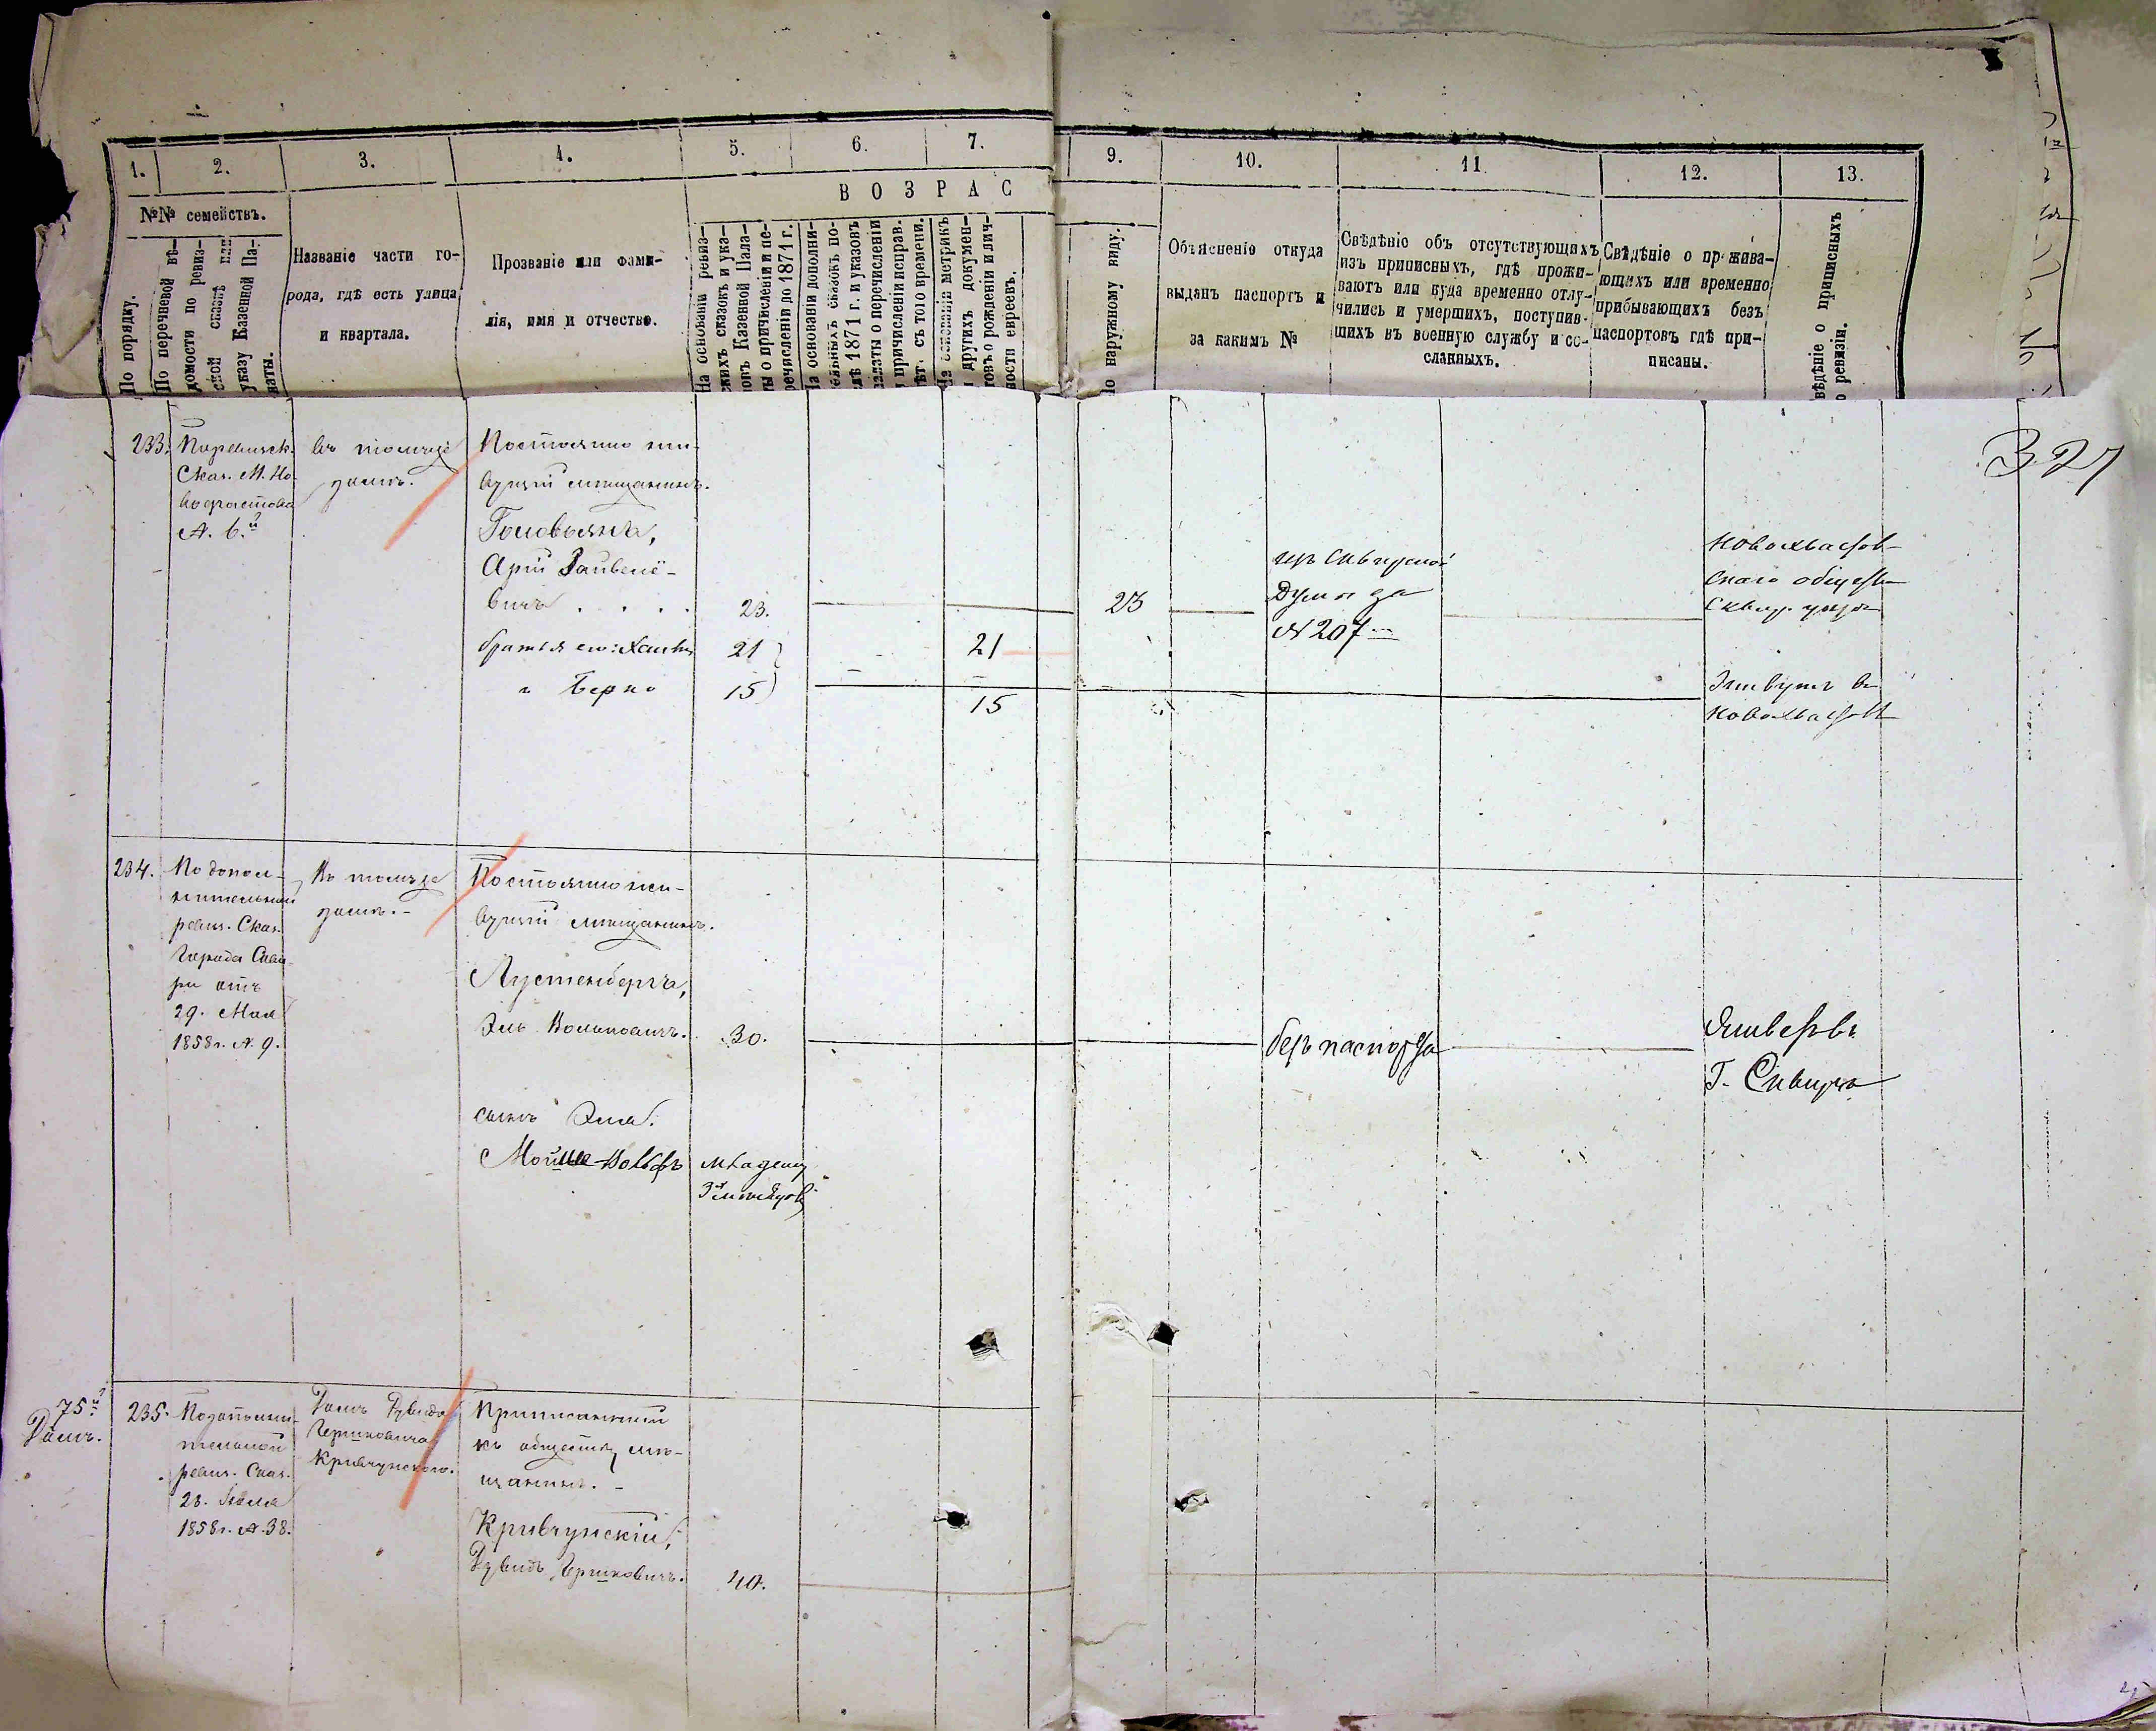 1.
2.
3.
4.
5.
6.
7.
9.
10.
11.
12.
13.
№№ семействъ.
По порядку.
По перечневой вѣ-
домости по ревиз-
ской сказкѣ или
указу Казенной Па-
латы.
Названіе части го-
рода, гдѣ есть улица
и квартала.
Прозваніе или фами-
лія, имя и отчество.
ВОЗРАС
На основаніи ревиз-
скихъ сказокъ и ука-
зовъ Казенной Пала-
ты о причисленіи и пе-
речисленіи до 1871 г.
На основаніи дополни-
тельныхъ сказокъ по-
слѣ 1871 г. и указовъ
палаты о перечисленіи
и причисленіи исправ.
лѣт. съ того времени.
На основаніи метрикъ
и другихъ докумен-
товъ о рожденіи и лич-
ности евреевъ.
По наружному виду.
Объясненіе откуда
выданъ паспортъ и
за какимъ №
Свѣдѣніе объ отсутствующихъ
изъ приписныхъ, гдѣ прожи-
ваютъ или куда временно отлу-
чились и умершихъ, поступив-
шихъ въ военную службу и со-
сланныхъ.
Свѣдѣніе о прожива-
ющихъ или временно
прибывающихъ безъ
паспортовъ гдѣ при-
писаны.
Свѣдѣніе о приписныхъ
по ревизіи.
327
233.
По ревизск.
Сказ. М. Но-
вофастова
№ 6.й
Въ томъ же
домѣ.
Постоянно жи-
вущій мѣщанинъ.
Арій Зайвеле-
вичъ . . . .
23.
23
изъ Сквирской
Думы за
№ 207
Новохвастов-
скаго общества
Сквир. уезда
братья его: Хаимъ
21
21
" Берко
15
15
Живутъ въ
Новохвастовѣ
234.
По допол-
нительной
ревиз. Сказ.
города Скви-
ры отъ
29. Мая
1858 г. № 9.
Въ томъ же
домѣ.-
Постоянно жи-
вущій мѣщанинъ.
Лустенбергъ,
Эль Вольковичъ.
30.
безъ паспорта
Г. Сквира
сынъ Эля:
Мойше-Вольфъ
младенец
75й
Домъ.
235.
По дополни-
тельной
ревиз. Сказ.
1858 г. № 38.
Домъ Дувида
Гершковича
Кривчунского.
Приписанный
къ обществу мѣ-
щанинъ. -
Кривчунскій,
Дувидъ Гершковичъ.
40.